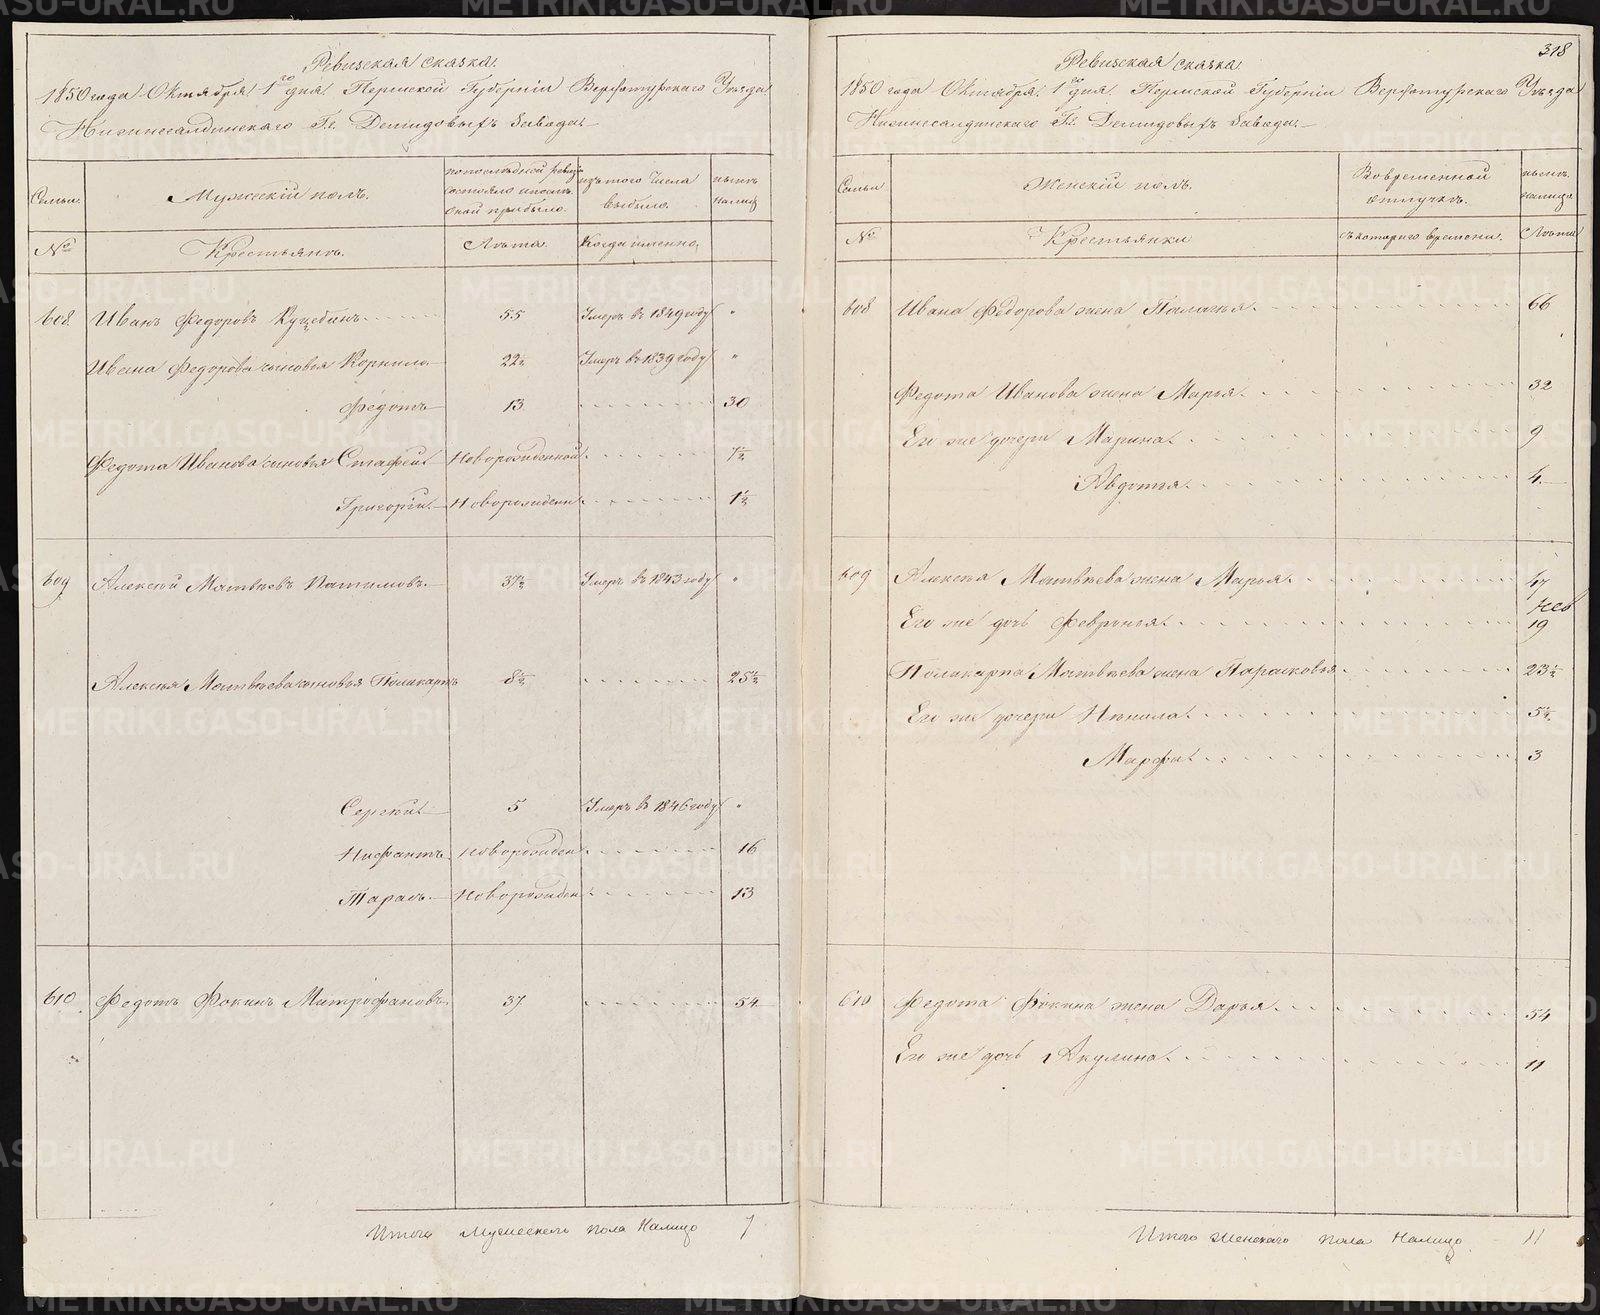 Ревизская сказка.
1850 года Октября 1го дня. Пермской Губернiи Верхотурскаго Уѣзда
Нижнесалдинскаго Гг. Демидовыхъ Завода.
Семьи. Мужескiй полъ. по послѣдней ревизiи состояло и послѣ оной прибыло. изъ того числа выбыло. нынѣ налицо
№ Крестьянъ. Лѣта. Когда именно.
608. Иванъ Федоровъ 55 Умеръ въ 1849 году "
Ивана Федорова сыновья Корнило 22½ Умеръ въ 1839 году "
Федотъ 13 30
Федота Иванова сыновья Новорожденной
Григорiй. Новорожден. 1½
609 Алексѣй Матвѣевъ 37½ Умеръ въ 1843 году "
Алексѣя Матвѣева сыновья Поликарпъ 8½ 25½
Сергѣй 5 Умеръ въ 1846 году "
Нифантъ Новорожден 16
Тарасъ. Новорожден 13
610 Федотъ Фокинъ Митрофановъ. 37 54
Итого Мужескаго пола Налицо 7
318
Ревизская сказка.
1850 года Октября 1го дня. Пермской Губернiи Верхотурскаго Уѣзда
Нижнесалдинскаго Гг. Демидовыхъ Завода.
Семьи Женскiй полъ. Во временной отлучкѣ. нынѣ налицо.
№ Крестьянки съ котораго времени. Лѣта
608 Ивана Федорова жена Палагья. 66
Федота Иванова жена Марья. 32
Его же дочери Марина. 9
Авдотья. 4
609 Алексѣя Матвѣева жена Марья. 47
Его же дочь Февронья. 19
Поликарпа Матвѣева жена Парасковья 23½
Его же дочери Ненила. 5½
Марфа. 3
610 Федота Фокина жена Дарья. 54
Его же дочь Акулина. 11
Итого Женскаго пола Налицо 11
METRIKI.GASO-URAL.RU